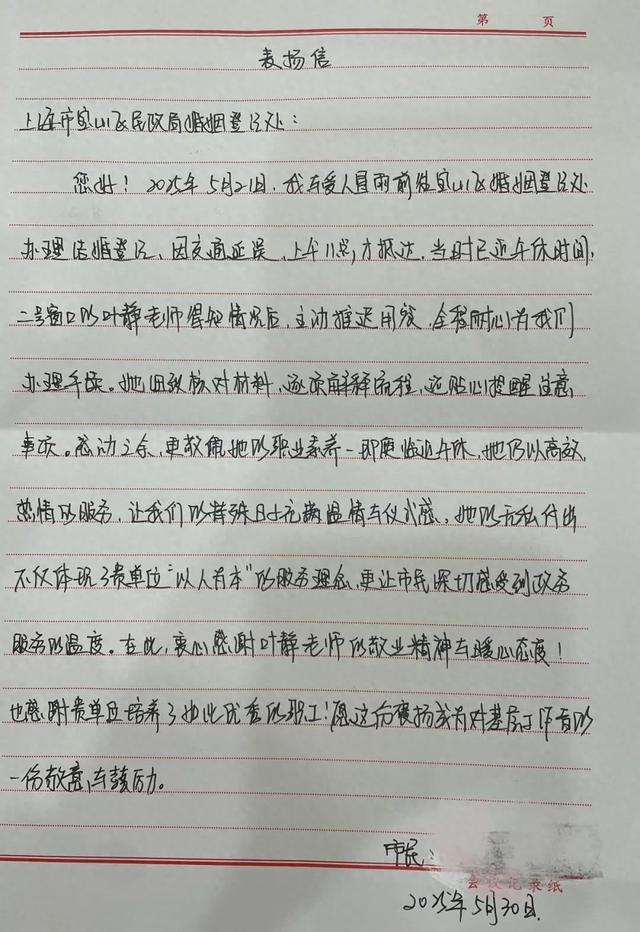 第 页
表扬信
上海市宝山区民政局婚姻登记处：
您好！2025年5月21日，我与爱人冒雨前往宝山区婚姻登记处
办理结婚登记，因交通延误，上午11点才抵达，当时已近午休时间，
二号窗口的叶静老师得知情况后，主动推迟用餐，全程耐心为我们
办理手续。她细致核对材料，逐项解释流程，还贴心提醒注意
事项。感动之余，更敬佩她的职业素养－即便临近午休，她仍以高效、
热情的服务，让我们的特殊日子充满温情与仪式感，她的无私付出
不仅体现了贵单位“以人为本”的服务理念，更让市民深切感受到政务
服务的温度。在此，衷心感谢叶静老师的敬业精神与暖心态度！
也感谢贵单位培养了如此优秀的职工！愿这份赞扬成为对基层工作者的
一份敬意与鼓励。
市民：
会议记录纸
2025年5月30日.